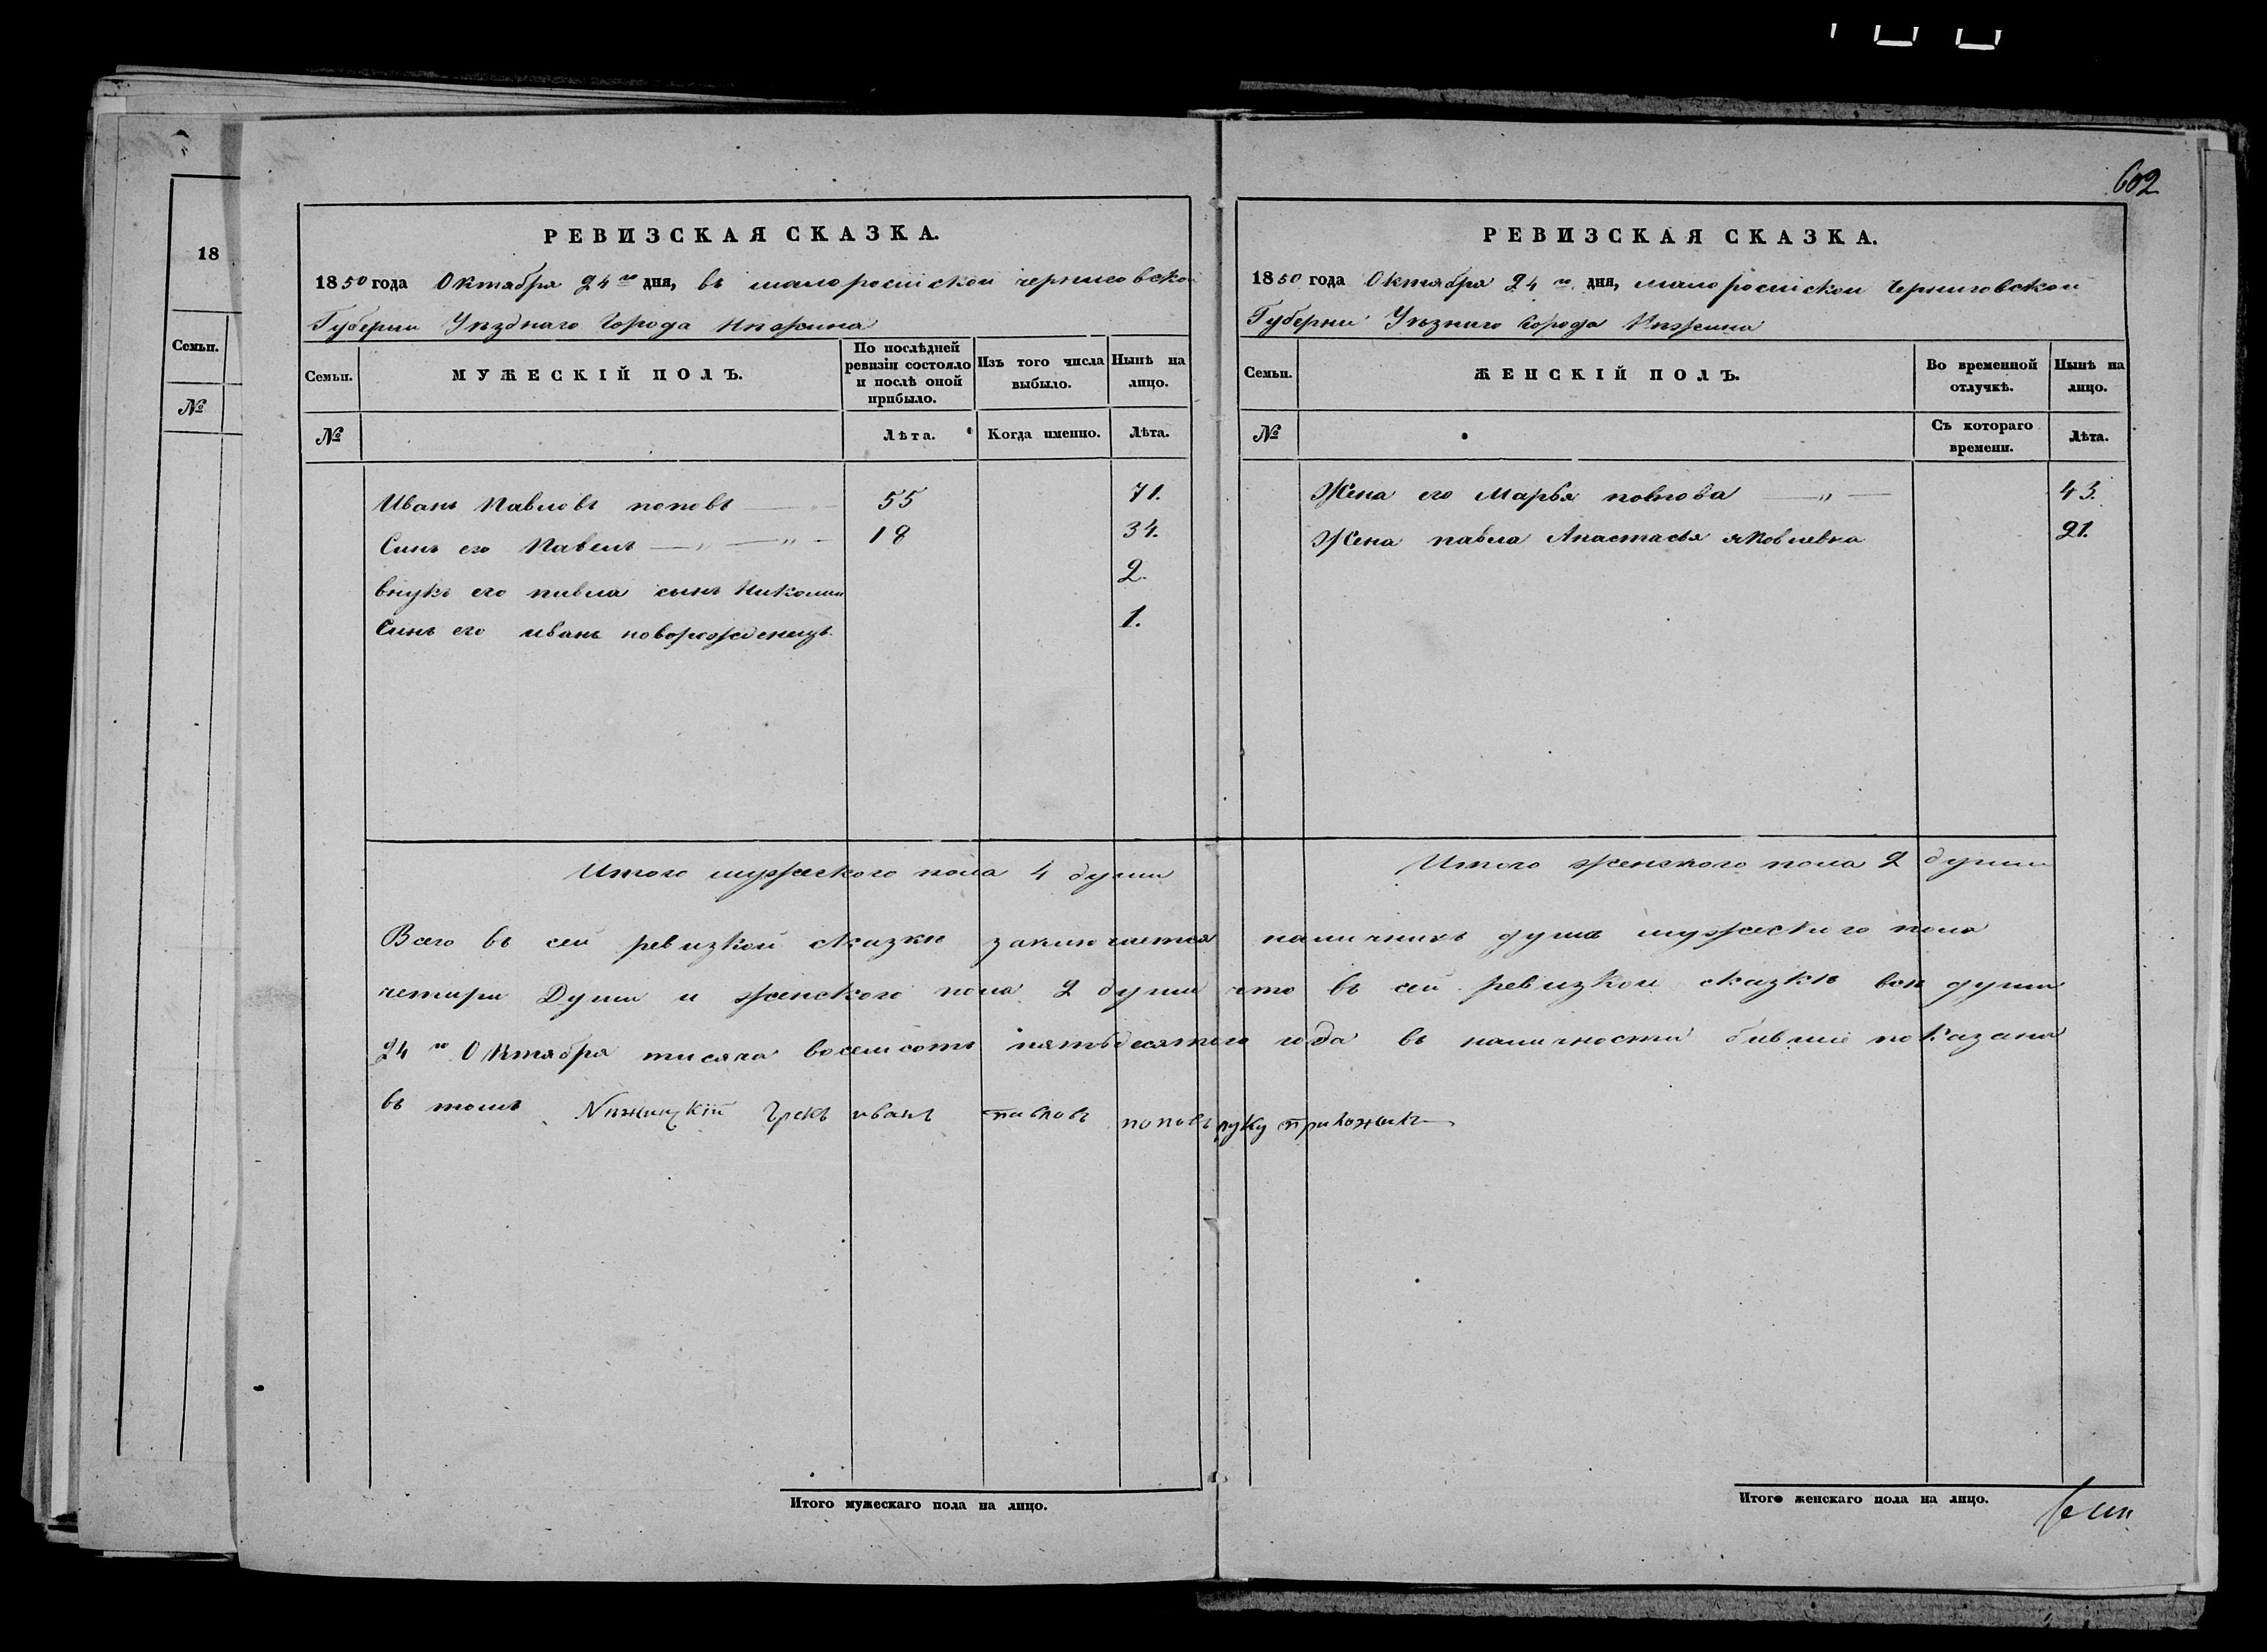 602
18
Семьи.
№
РЕВИЗСКАЯ СКАЗКА.
1850 года Октября 24го дня, въ малоросийской черниговской
Губерни Уѣзднаго Города Нѣжина
Семьи.
МУЖЕСКІЙ ПОЛЪ.
По послѣдней ревизіи состояло и послѣ оной прибыло.
Изъ того числа выбыло.
Нынѣ на лицо.
№
Лѣта.
Когда именно.
Лѣта.
Иванъ Павловъ поповъ 55 71.
Синъ его Павелъ 18 34.
внукъ его павла сынъ Николай 2.
Синъ его иванъ новорожденецъ. 1.
Итого мужеского пола 4 души
РЕВИЗСКАЯ СКАЗКА.
1850 года Октября 24го дня, малоросийской Черниговской
Губерни Уѣзнаго города Нѣжина
Семьи.
ЖЕНСКІЙ ПОЛЪ.
Во временной отлучкѣ.
Нынѣ на лицо.
№
Съ котораго времени.
Лѣта.
Жена его Марья 43.
Жена павла Анастасья яковлевна 21.
Итого женского пола 2 души
Всего въ сей ревизкой сказки заключается наличнихъ душъ мужеского пола
четири Души и женского пола 2 души что въ сей ревизкой сказкѣ всѣ души
24го Октября тисяча восемсотъ пятьдесятого года въ наличности бившiе показани
въ томъ Нѣжинцкій Грекъ иванъ павловъ поповъ руку приложилъ
Итого мужескаго пола на лицо.
Итого женскаго пола на лицо.